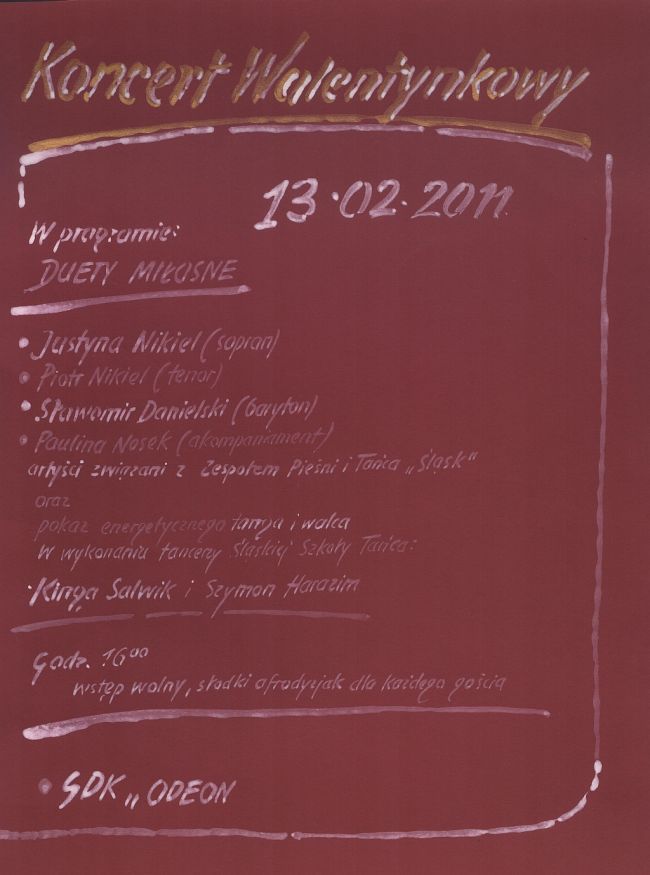 Koncert Walentynkowy
13.02.2011
W programie:
DUETY MIŁOSNE
• Justyna Nikiel (sopran)
• Piotr Nikiel (tenor)
• Sławomir Danielski (baryton)
• Paulina Nosek (akompaniament)
artyści związani z Zespołem Pieśni i Tańca „Śląsk"
oraz
pokaz energetycznego tanga i walca
w wykonaniu tancerzy Śląskiej Szkoły Tańca:
Kinga Salwik i Szymon Harazim
Godz. 16⁰⁰
wstęp wolny, słodki afrodyzjak dla każdego gościa
• SDK „ODEON